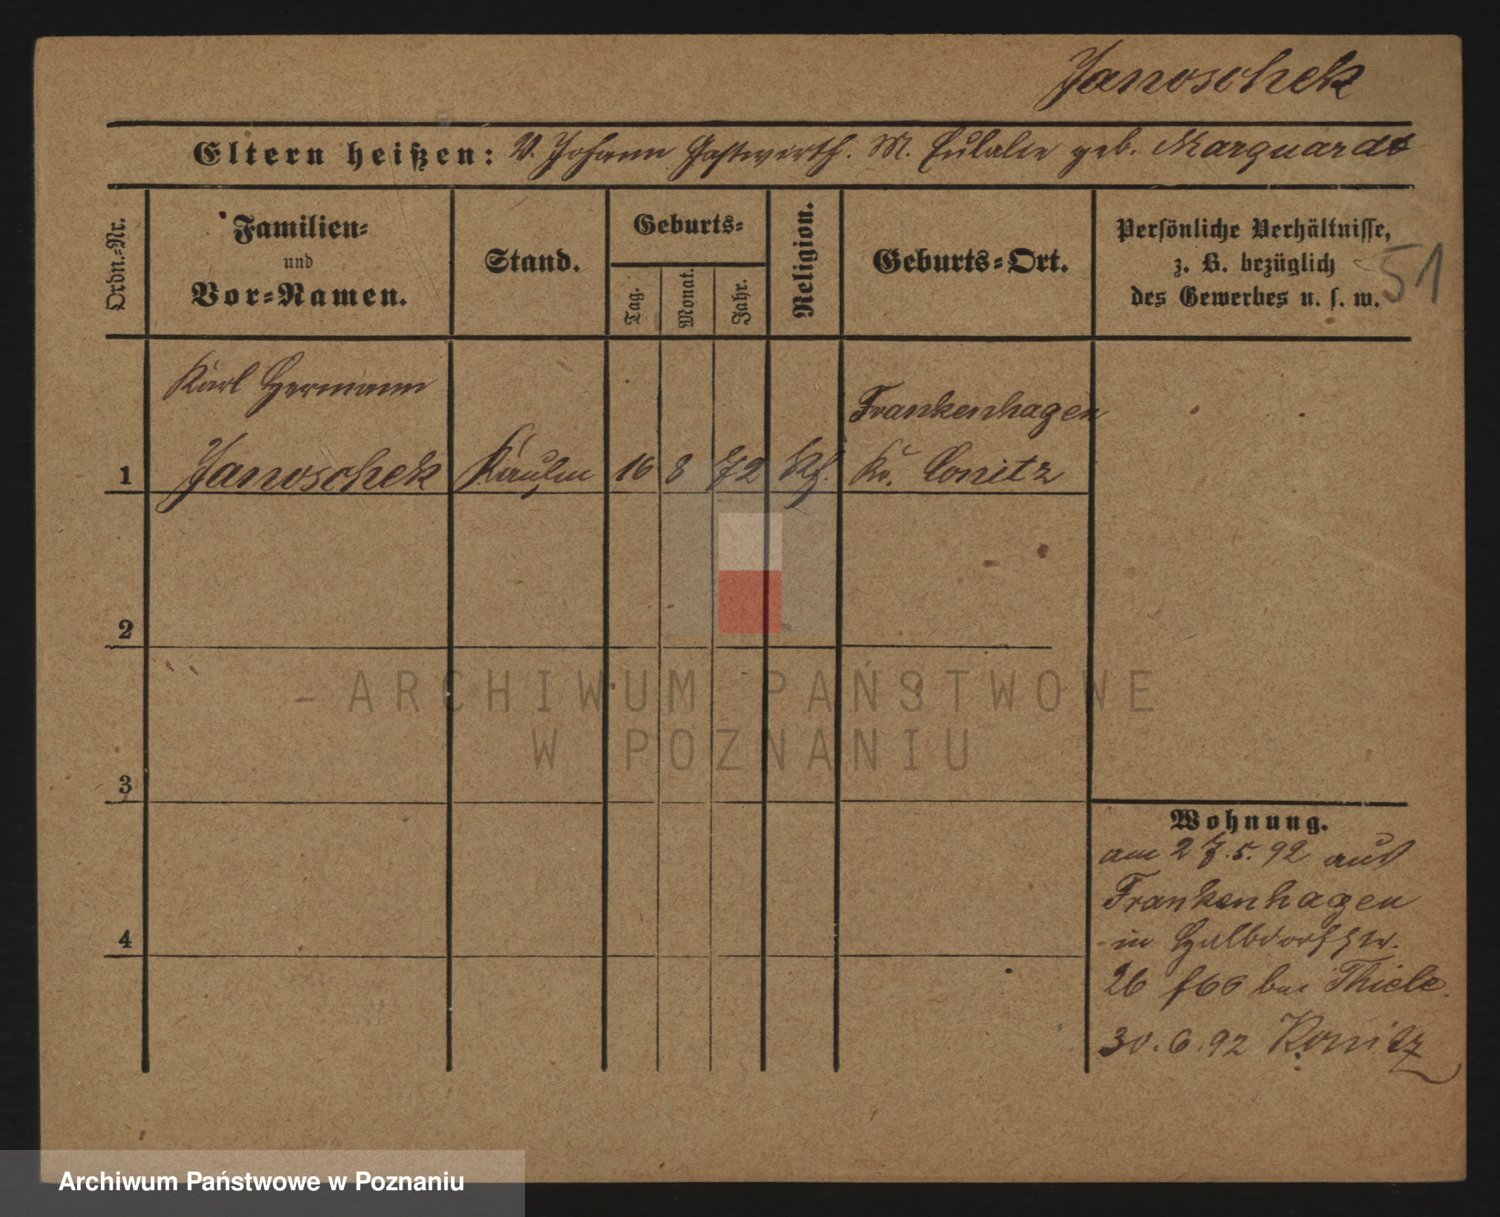 Janoschek
Eltern heißen: V. Johann Gastwirth. M. Eulalie geb. Marquardt
Ordn.-Nr.
Familien-
und
Vor-Namen.
Stand.
Geburts-
Tag.
Monat.
Jahr.
Religion.
Geburts-Ort.
Persönliche Verhältnisse,
z. B. bezüglich
des Gewerbes u. s. w.
51
Karl Hermann
1 Janoschek Kaufm 16 8 72 Frankenhagen
Kr. Conitz
2
ARCHIWUM PAŃSTWOWE
W POZNANIU
3
Wohnung.
am 27.5.92 aus
Frankenhagen
4
in Halbdorfstr.
26 bei Thiele.
30.6.92 Konitz
Archiwum Państwowe w Poznaniu